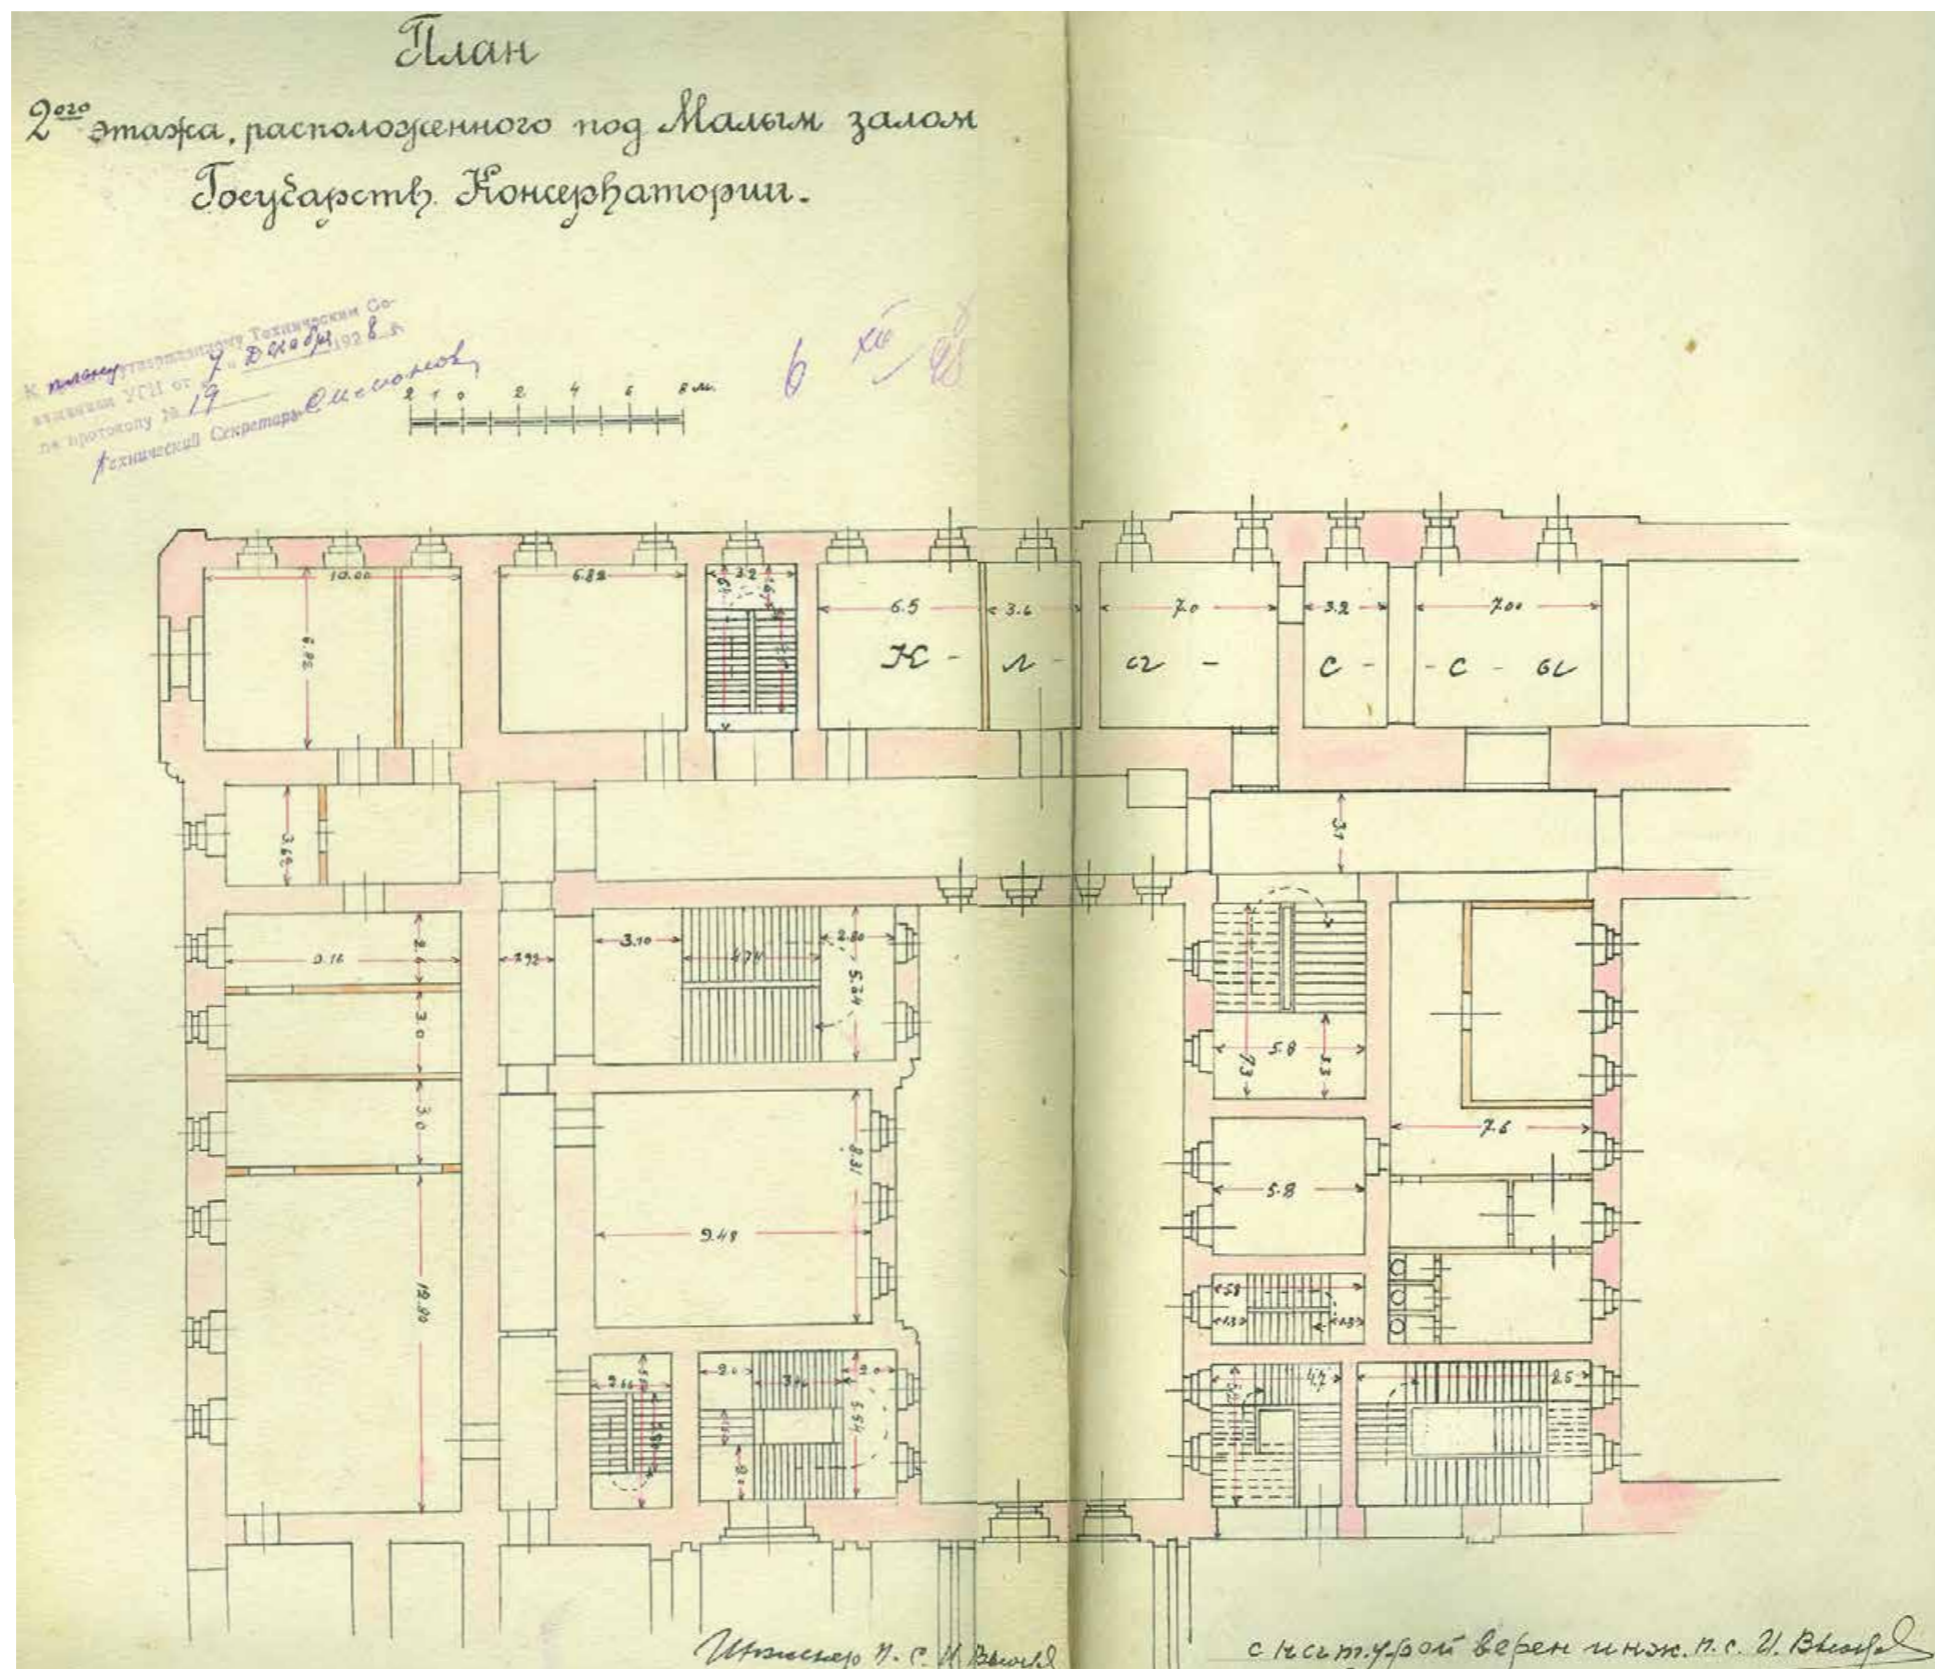 План
2ого этажа, расположенного под Малым залом
Государств. Консерватории.
К плану утвержденному Техническим Со-
вещанием УГИ от „7" Декабря 1928 г.
по протоколу № 19
Технический Секретарь Симонов
6 XII 28
2 1 0 2 4 6 8 м.
10.00 6.82 3.2
6.5 3.6 7.0 3.2 7.00
К - л - а - с - - с - ы
6.82
3.62 3.1
9.16 2.4 1.92 3.10 4.74 2.80
5.24
3.0
5.8 7.3 3.3
3.0 7.6
8.31
5.8
9.48
12.80
5.8
1.3
2.0 2.0 4.7 8.5
5.54
2.0
Инженер п. с. И.
с натурой верен инж. п. с. И.